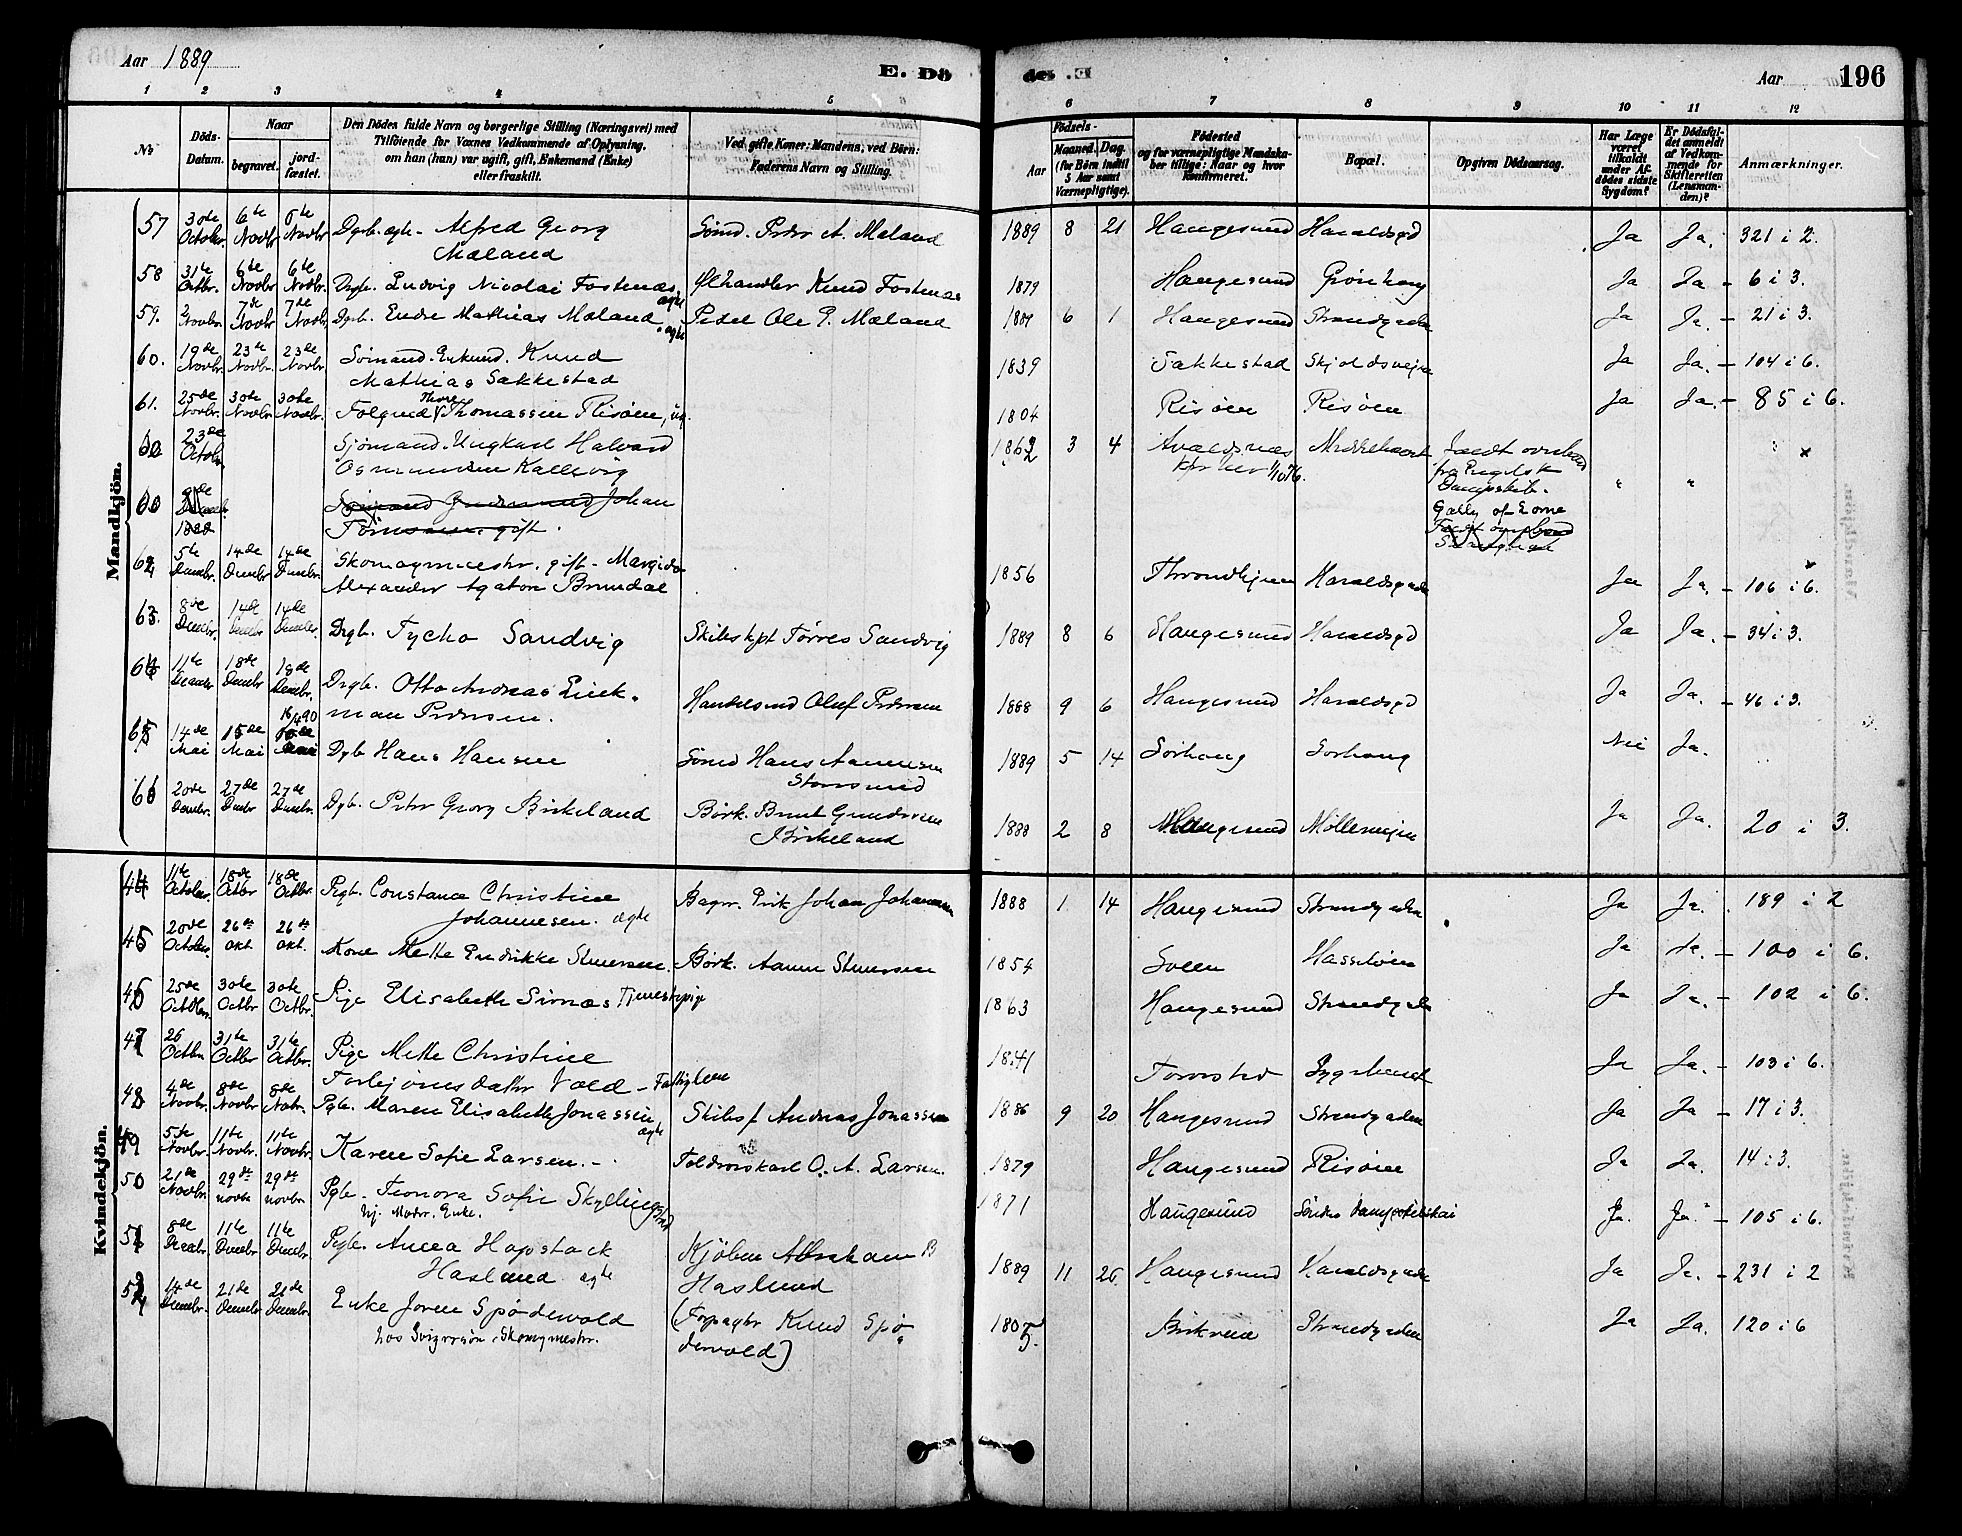 Aar 1889
E. Dö
de. E
Aar
196
1 2 3 4 5 6 7 8 9 10 11 12
No
Döds-
Datum.
Naar
begravet.
jord-
fæstet.
Den Dödes fulde Navn og borgerlige Stilling (Næringsvei) med
Tilföiende for Voxnes Vedkommende af Oplysning,
om han (hun) var ugift, gift, Enkemand (Enke)
eller fraskilt.
Ved gifte Koner: Mandens, ved Börn:
Faderens Navn og Stilling.
Födsels-
Aar
Maaned. Dag.
(for Børn indtil
5 Aar samt
Værnepligtige).
Födested
og for værnepligtige Mandska-
ber tillige: Naar og hvor
konfirmeret.
Bopæl.
Opgiven Dödsaarsag.
Har Læge
været
tilkaldt
under Af-
dødes sidste
Sygdom?
Er Dødsfal-
det anmeldt
af Vedkom-
mende for
Skifteretten
(Lensman-
den)?
Anmærkninger.
Mandkjön.
57 30te Octobr. 6te Novbr 6te Novbr Dgb. ægte Alfred Georg Sømd. Peder A. Mæland 1889 8 21 Haugesund Haraldsgd Ja Ja. 321 i 2.
Mæland
58 31te Octbr. 6te Novbr 6te Novbr. Drgb. Ludvig Nicolai Fostenæs, ægte Ølhandler Knud Fostenæs 1879 Haugesund Grønhaug Ja Ja - 6 i 3.
59. 2 Novbr. 7de Novbr 7de Novbr. Dgb. Endre Mathias Mæland, ægte Pedel Ole P. Mæland 1889 6 1 Haugesund Strandgaden Ja Ja. - 21 i 3.
60. 19de Novbr. 23de Novbr. 23de Novbr Sømand. Enkemd. Knud 1839 Sakkestad Skjoldsvejen Ja Ja. - 104 i 6.
Mathias Sakkestad
61. 25de Novbr. 30te Novbr. 30te Novbr. Thore Thomassen Risøen, 1804 Risøen Risøen Ja Ja. - 85 i 6.
23de Octobr Sjømand Ungkarl Halvard 1862 3 4 Avaldsnæs
Osmundsen Kallevig Faldt overbord
fra Engelsk
Dampskib.
Johan
gift.
62 5te Decbr. 14de Decbr 14de Decbr. Skomagermester. gift - 1856 Throndhjem Haraldsgaden Ja Ja. - 106 i 6.
Alexander Agaton Brundal
63. 8de Decbr. 14de Decbr 14de Decbr. Drgb. Tycho Sandvig Skibskpt Tørres Sandvig 1889 8 6 Haugesund Haraldsgd Ja Ja. - 34 i 3.
64 11te Decbr 18de Decbr 18de Decbr. Drgb. Otto Andreas Handelsmd Oluf Pedersen 1888 9 6 Haugesund Haraldsgd Ja Ja. - 46 i 3.
man Pedersen.
65 14de Mai 15de Mai 16/4 90 Dgb Hans Hansen Sømd Hans Aanensen 1889 5 14 Sørhaug Sørhaug Nei Ja.
Storesund
66 20de Decbr. 27de Decbr 27de Decbr. Dgb. Peter Georg Birkeland Børk. Bernt Gundersen 1888 2 8 Haugesund Møllerveien Ja Ja. 20 i 3.
Birkeland
Kvindekjön.
44 11te Octobr. 18de Octbr 18de Octbr. Pigb. Constance Christine Bager. Erik Johan Johannesen 1888 1 14 Haugesund Strandgaden Ja Ja. 189 i 2
Johannesen. ægte
45 20de Octobr. 26de Okt. 26de Okt. Kone Mette Endrikke Steensen. Børk. Aanen Steensen 1854 Sveen Hasseløen Ja Ja. - 100 i 6.
46 25de Octobr. 30te Octbr 30te Octbr. Pige Elisabeth Sirnæs Tjenestepige 1863 Haugesund Strandgaden Ja Ja. - 102 i 6.
47 26 Octbr 31te Octbr 31te Octbr. Pige Mette Christine 1841 Torvestad Sygehuset Ja Ja. - 103 i 6.
Torbjørnsdatter Vold - Fattiglem
48 4de Novbr. 8de Novbr 8de Novbr. Pgb. Maren Elisabeth Jonassen ægte Skibsf Andreas Jonassen 1886 9 20 Haugesund Strandgaden Ja Ja - 17 i 3.
49 5te Novbr. 11te Novbr. 11te Novbr. Karen Sofie Larsen. Toldroerskarl O. A. Larsen 1879 Haugesund Risøen Ja Ja. 14 i 3.
50 21de Novbr. 29de novbr 29de novbr Pgb. Leonora Sofie Skyllingstad 1871 Haugesund Søndre Dampskibskai Ja. Ja. - 105 i 6.
hj. Moder. Enke.
51 8de Decbr. 11te Decbr 11te Decbr. Pigb. Anna Hapstock Kjøbm Abraham B 1889 11 26 Haugesund Haraldsgaden Ja Ja. - 231 i 2
Haslund ægte Haslund
52 14de Decbr. 21de Decbr 21de Decbr. Enke Joren Spødervold (Forpagter Knud Spø 1805. Strandgaden Ja Ja. 120 i 6
hos Svigersøn, Skomagmester. dervold)